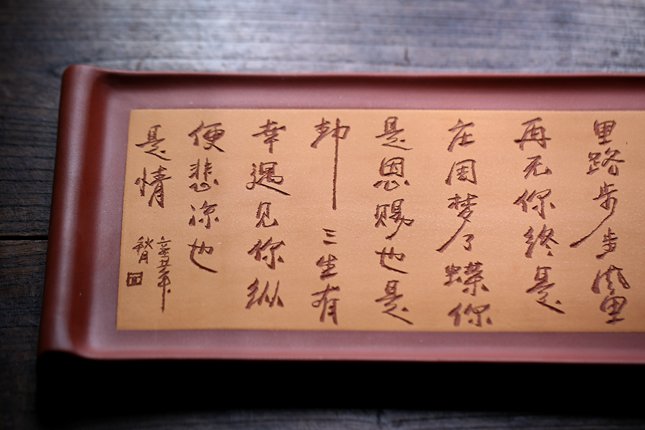 里路步步蛮里
再无你终是
庄周梦了蝶你
是恩赐也是
劫三生有
幸遇见你纵
便悲凉也
是情
辛丑年